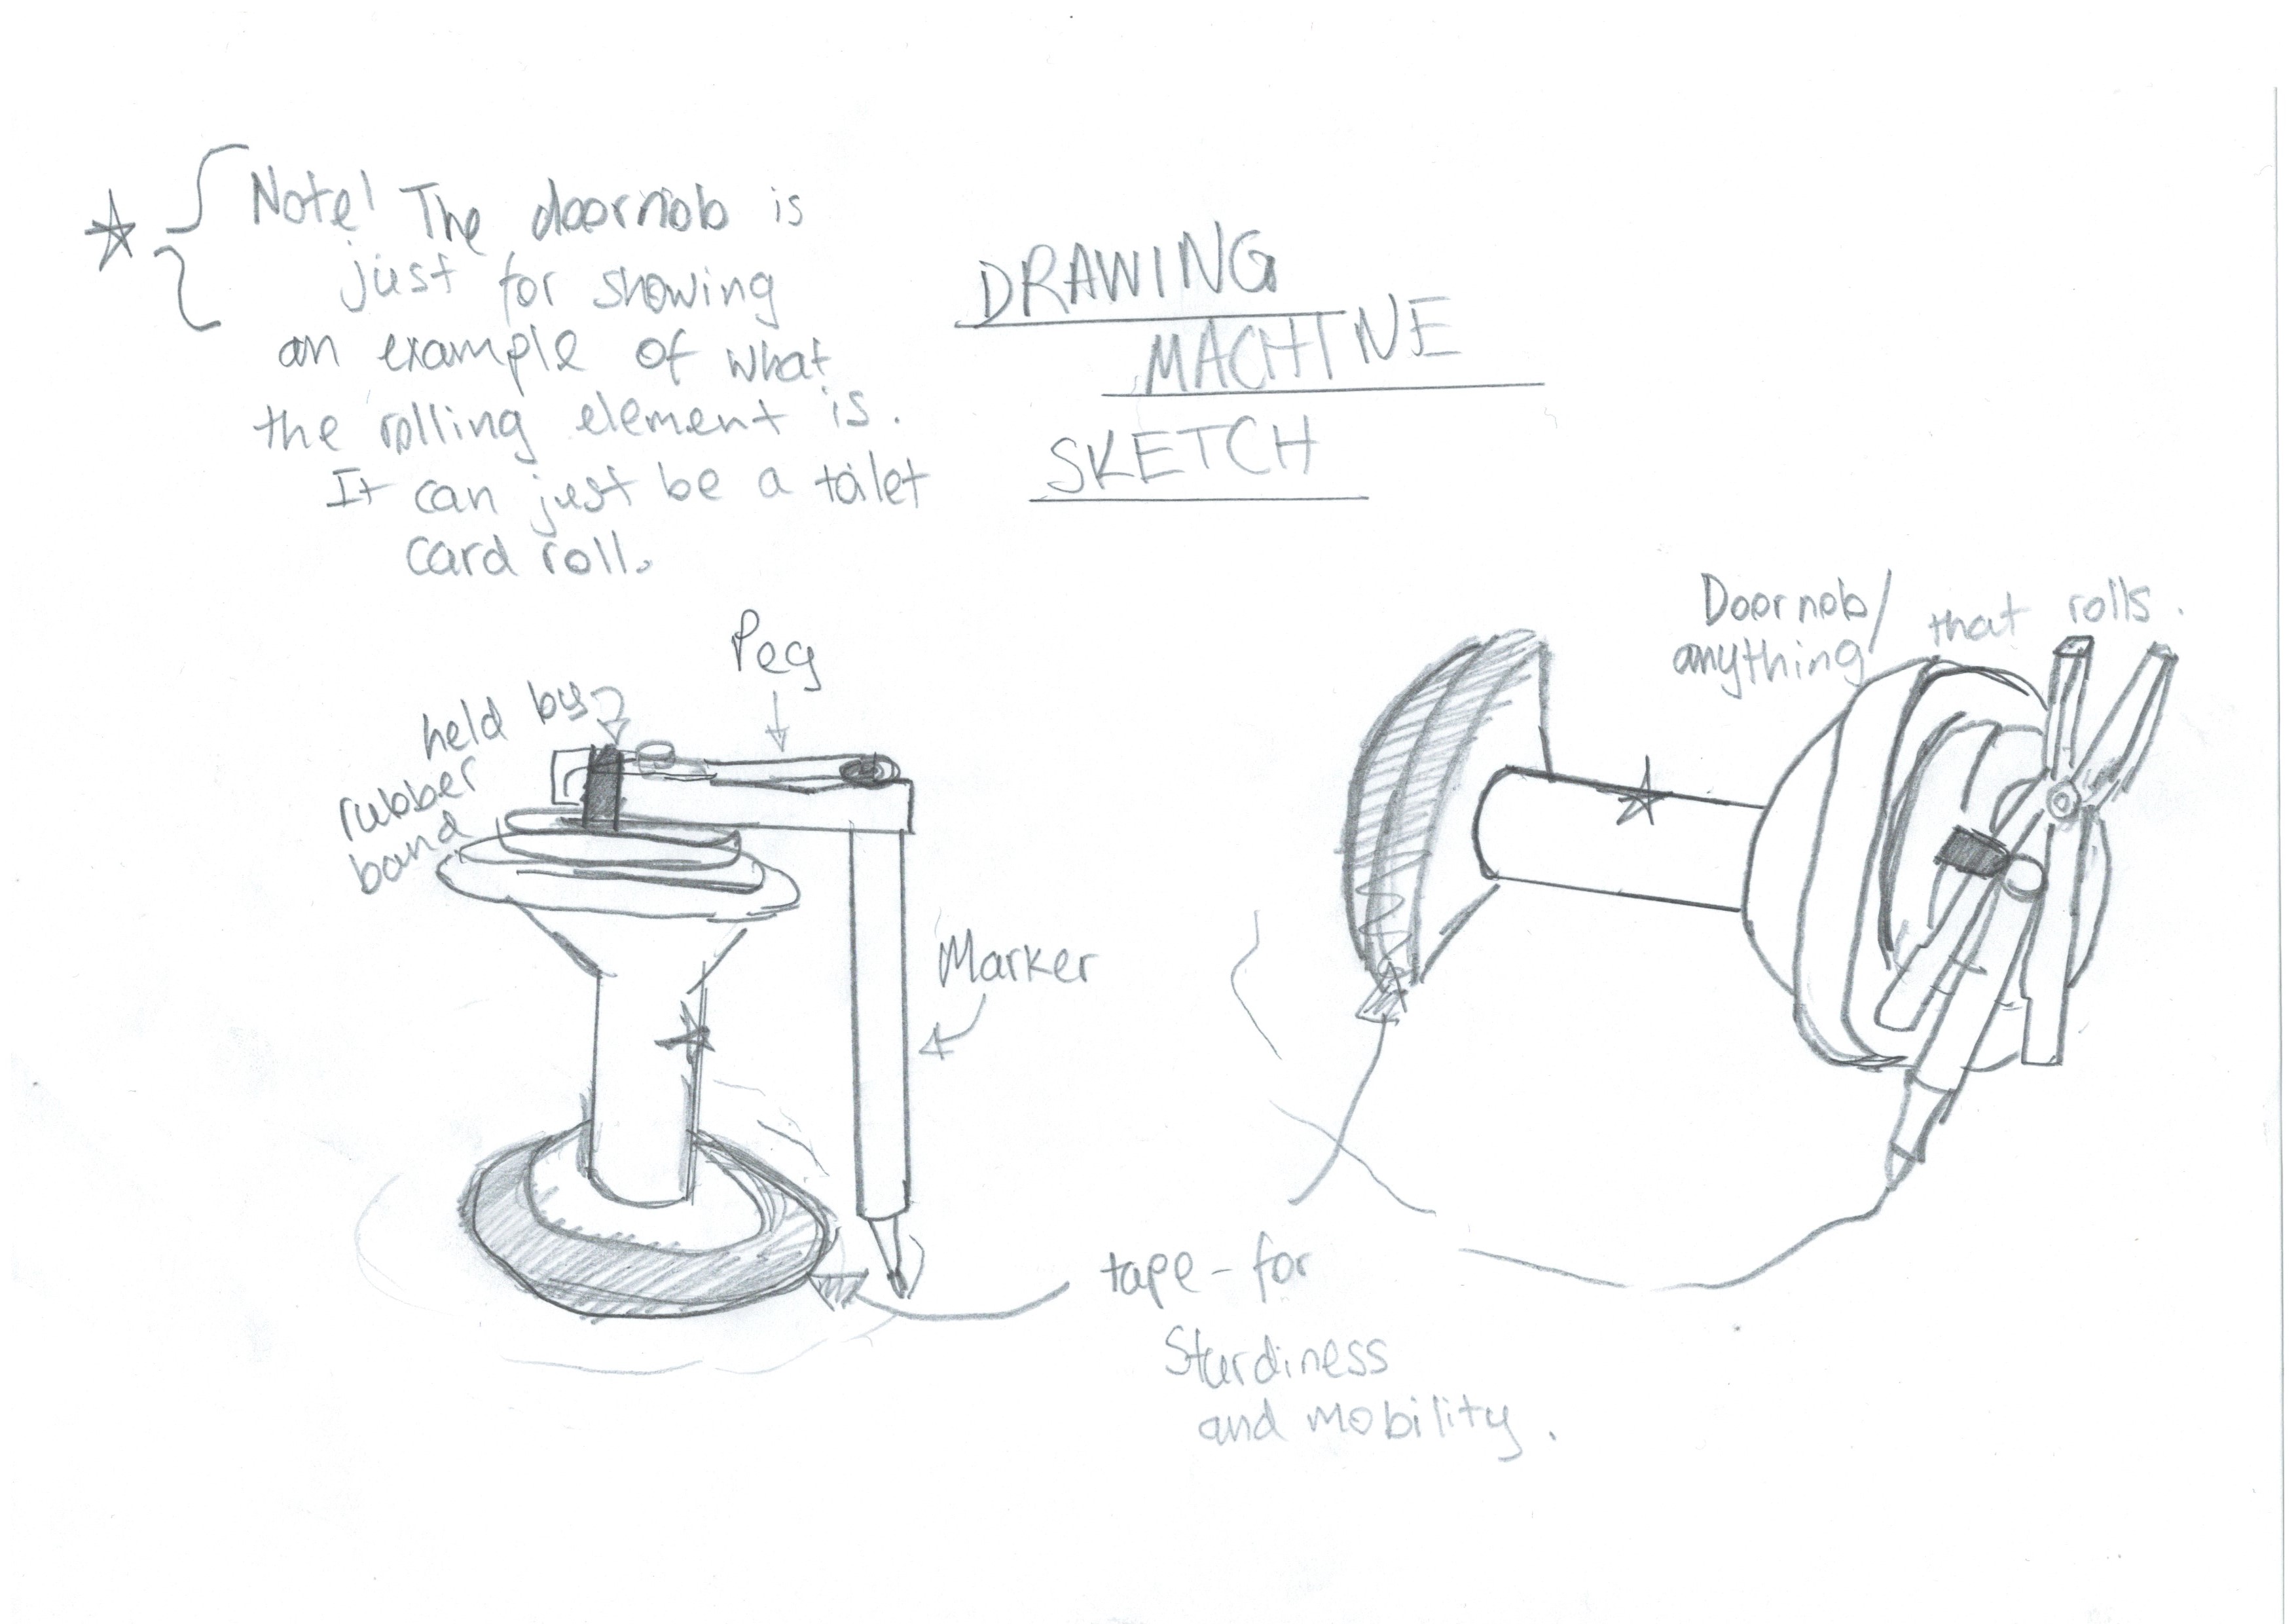 Note! The doornob is
just for showing
an example of what
the rolling element is.
It can just be a toilet
card roll.
DRAWING
MACHINE
SKETCH
Peg
held by
rubber
band
Marker
Doornob/
anything
that rolls.
tape - for
Sturdiness
and mobility.